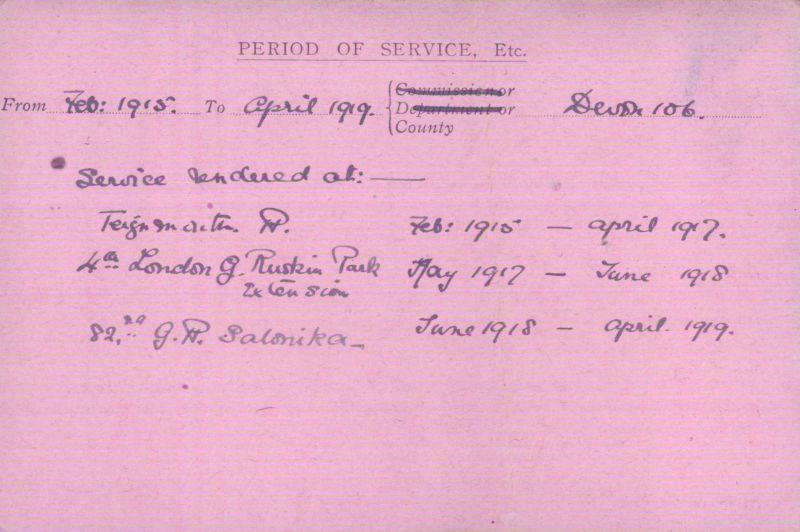 PERIOD OF SERVICE, Etc.
Commission or
From Feb: 1915. To April 1919. Department or Devon 106.
County
Service rendered at: —
Teignmouth. H. Feb: 1915 — April 1917.
4th London G. Ruskin Park May 1917 — June 1918
Extension
82nd G.H. Salonika — June 1918 — April. 1919.